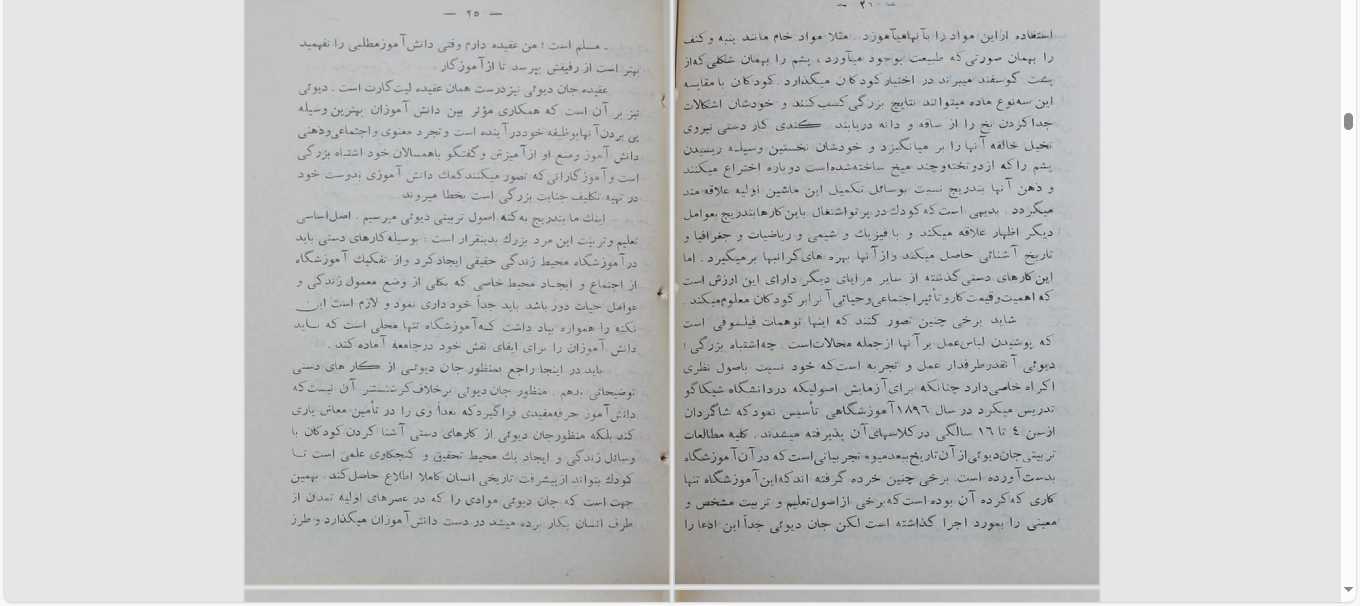 — ۲۵ —
ـ مسلم است ؛ من عقیده دارم وقتی دانش‌آموز مطلبی را نفهمید
بهتر است از رفیقش بپرسد تا از آموزگار
عقیده جان دیوئی نیز درست همان عقیده لیت گارت است . دیوئی
نیز بر آن است که همکاری مؤثر بین دانش آموزان بهترین وسیله
پی بردن آنها بوظیفه خود در آینده است و تجرد معنوی و اجتماعی و ذهنی
دانش آموز و منع او از آمیزش و گفتگو باهمسالان خود اشتباه بزرگی
است و آموزگارانی که تصور میکنند کمك دانش آموزی بدوست خود
در تهیه تکلیف جنایت بزرگی است بخطا میروند
اینك ما بتدریج به کنه اصول تربیتی دیوئی میرسیم . اصل اساسی
تعلیم و تربیت این مرد بزرك بدینقرار است : بوسیله کارهای دستی باید
در آموزشگاه محیط زندگی حقیقی ایجاد کرد و از تفکیك آموزشگاه
از اجتماع و ایجاد محیط خاصی که بکلی از وضع معمول زندگی و
عوامل حیات دور باشد باید جداً خود داری نمود و لازم است این
نکته را همواره بیاد داشت که آموزشگاه تنها محلی است که باید
دانش آموزان را برای ایفای نقش خود در جامعه آماده کند .
باید در اینجا راجع بمنظور جان دیوئی از کار های دستی
توضیحاتی بدهم . منظور جان دیوئی برخلاف کرشنشتنر آن نیست که
دانش آموز حرفه مفیدی فرا گیرد که بعداً وی را در تأمین معاش یاری
کند بلکه منظور جان دیوئی از کارهای دستی آشنا کردن کودکان با
وسائل زندگی و ایجاد یك محیط تحقیق و کنجکاوی علمی است تا
کودك بتواند از پیشرفت تاریخی انسان کاملا اطلاع حاصل کند . بهمین
جهت است که جان دیوئی موادی را که در عصرهای اولیه تمدن از
طرف انسان بکار برده میشد در دست دانش آموزان میگذارد و طرز
استفاده از این مواد را بآنها میآموزد . مثلا مواد خام مانند پنبه و کنف
را بهمان صورتی که طبیعت بوجود میآورد ، پشم را بهمان شکلی که از
پشت گوسفند میبرند در اختیار کودکان میگذارد . کودکان با مقایسه
این سه نوع ماده میتوانند نتایج بزرگی کسب کنند و خودشان اشکالات
جدا کردن نخ را از ساقه و دانه دریابند . کندی کار دستی نیروی
تخیل خالقه آنها را بر میانگیزد و خودشان نخستین وسیله ریسیدن
پشم را که از دو تخته و چند میخ ساخته شده است دوباره اختراع میکنند
و ذهن آنها بتدریج نسبت بوسائل تکمیل این ماشین اولیه علاقه مند
میگردد . بدیهی است که کودك در پرتو اشتغال باین کارها بتدریج بعوامل
دیگر اظهار علاقه میکند و با فیزیك و شیمی و ریاضیات و جغرافیا و
تاریخ آشنائی حاصل میکند و از آنها بهره های گرانبها برمیگیرد . اما
این کارهای دستی گذشته از سایر مزایای دیگر دارای این ارزش است
که اهمیت و قیمت کار و تأثیر اجتماعی و حیاتی آنرا بر کودکان معلوم میکند .
شاید برخی چنین تصور کنند که اینها توهمات فیلسوفی است
که پوشیدن لباس عمل بر آنها از جمله محالات است . چه اشتباه بزرگی !
دیوئی آنقدر طرفدار عمل و تجربه است که خود نسبت باصول نظری
اکراه خاصی دارد چنانکه برای آزمایش اصولیکه در دانشگاه شیکاگو
تدریس میکرد در سال ۱۸۹٦ آموزشگاهی تأسیس نمود که شاگردان
از سن ٤ تا ۱٦ سالگی در کلاسهای آن پذیرفته میشدند . کلیه مطالعات
تربیتی جان دیوئی از آن تاریخ ببعد میوه تجربیاتی است که در آن آموزشگاه
بدست آورده است . برخی چنین خرده گرفته اند که این آموزشگاه تنها
کاری که کرده آن بوده است که برخی از اصول تعلیم و تربیت مشخص و
معینی را بمورد اجرا گذاشته است لکن جان دیوئی جداً این ادعا را